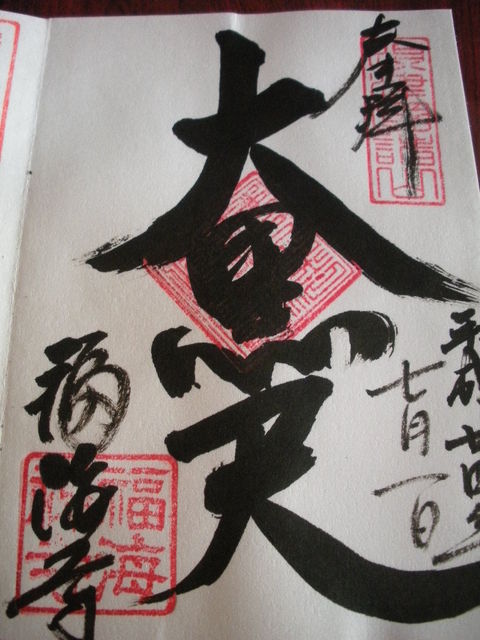 奉拝
平成廿四年
七月一日
大黒天
福海寺
福海